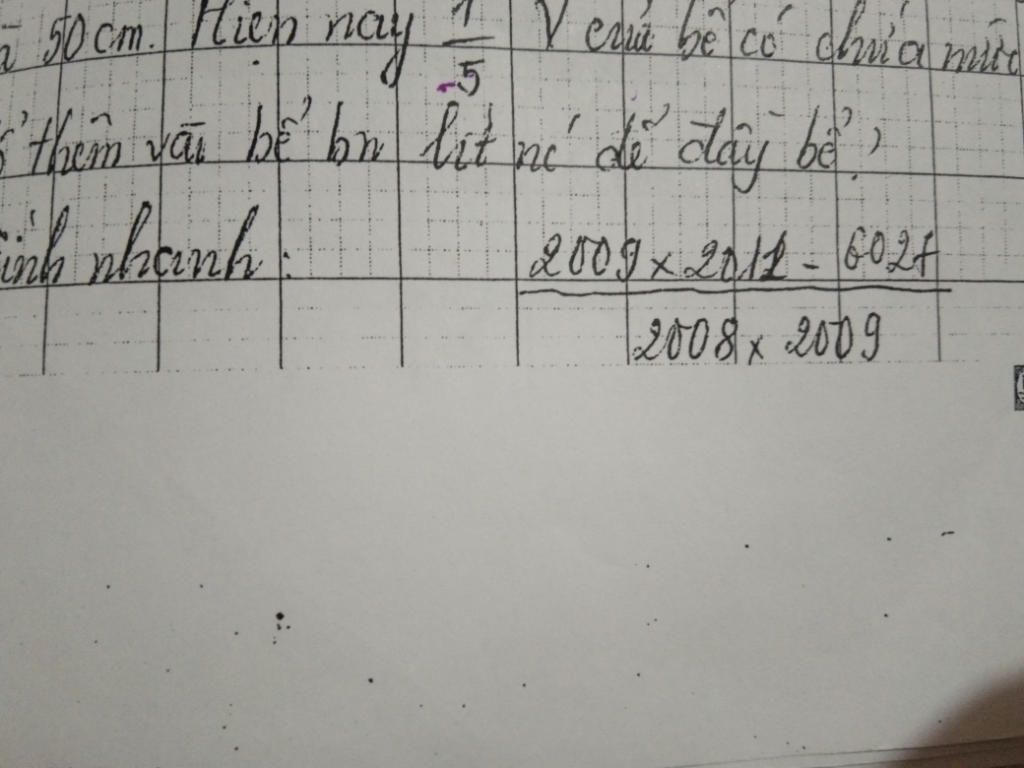 50cm. Hiện nay 1/5 V của bể có chứa nước
thêm vào bể bn lít nc để đầy bể?
tính nhanh: 2009 x 2011 - 6027 / 2008 x 2009